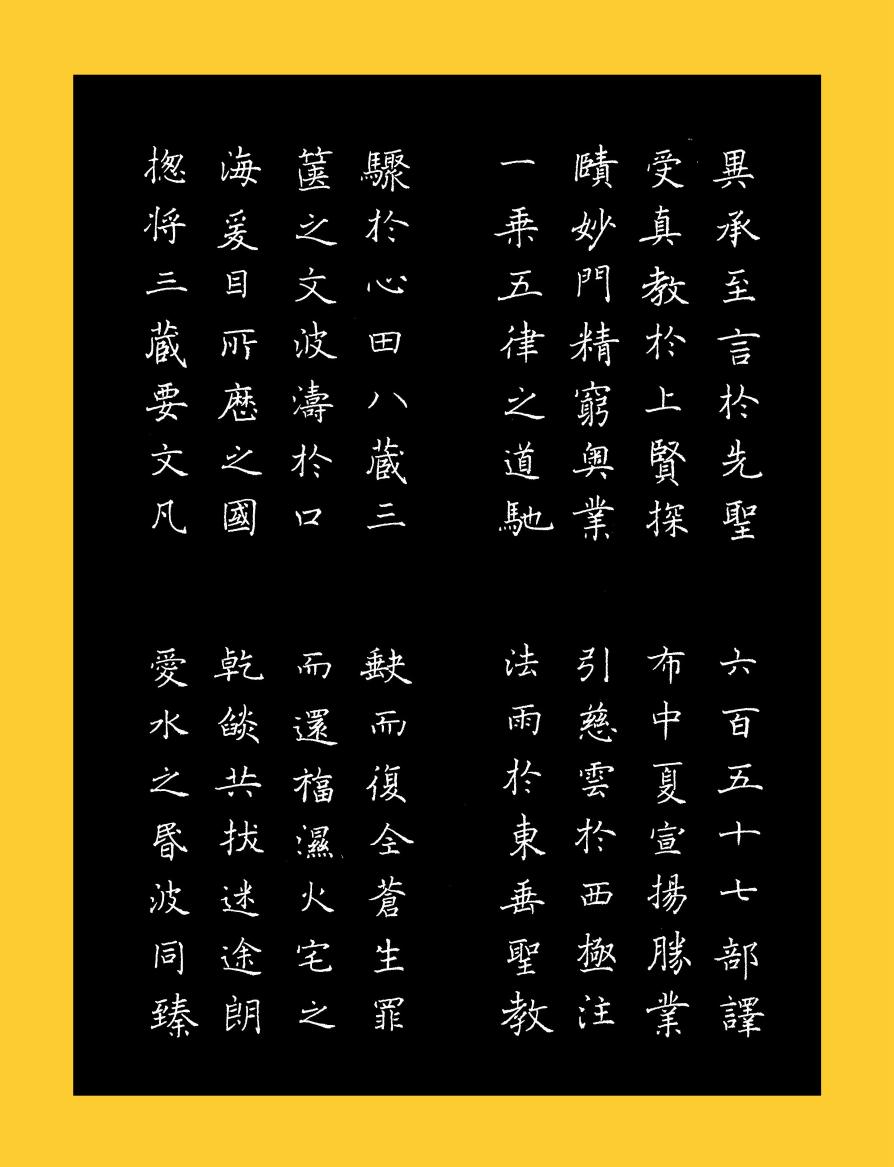 異承至言於先聖
受真教於上賢探
賾妙門精窮奥業
一乗五律之道馳
驟於心田八蔵三
篋之文波濤於口
海爰自所歷之國
揔将三蔵要文凡
六百五十七部譯
布中夏宣揚勝業
引慈雲於西極注
法雨於東垂聖教
缺而復全蒼生罪
而還福濕火宅之
乾燄共拔迷途朗
愛水之昬波同臻